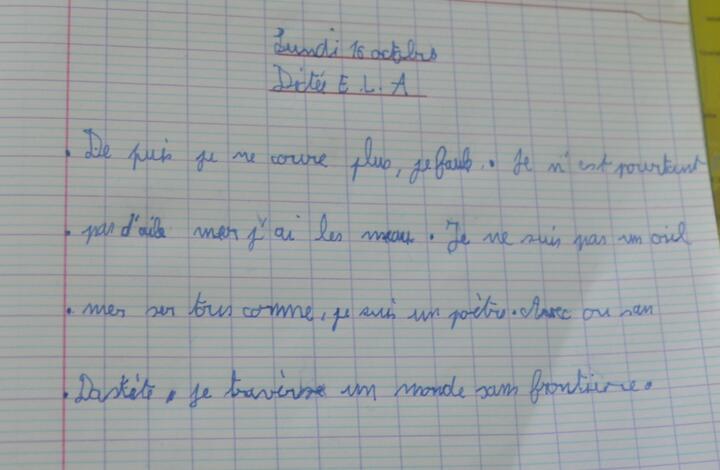 Lundi 16 octobre
Dictée E. L. A
De puis je ne coure plus, je . Je n'est pourtant
pas d'aile mer j'ai les . Je ne suis pas un
mer ser tous comme, je suis un poète. Avec ou san
. je un monde sans frontière.